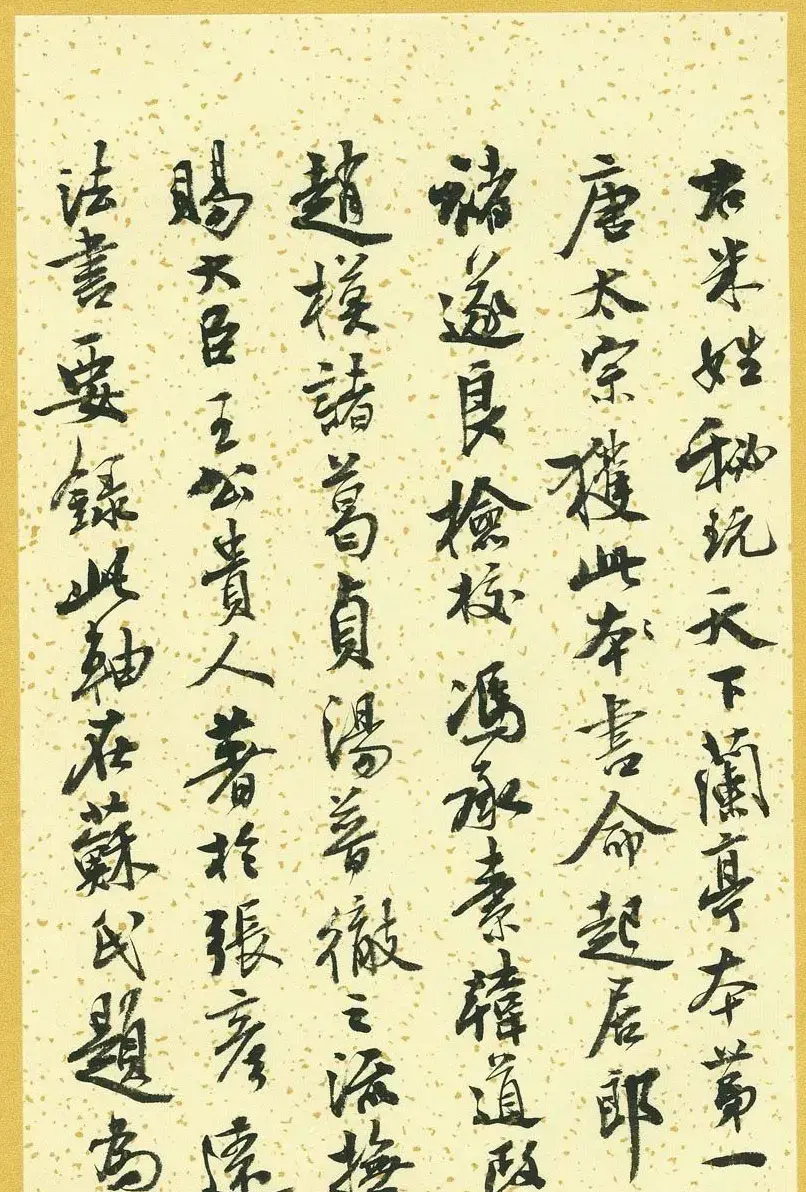 右米姓秘玩天下蘭亭本第一
唐太宗獲此本書命起居郎
褚遂良檢校馮承素韓道政
趙模諸葛貞湯普徹之流摸
賜大臣王公貴人著於張彥遠
法書要錄此軸在蘇氏題爲